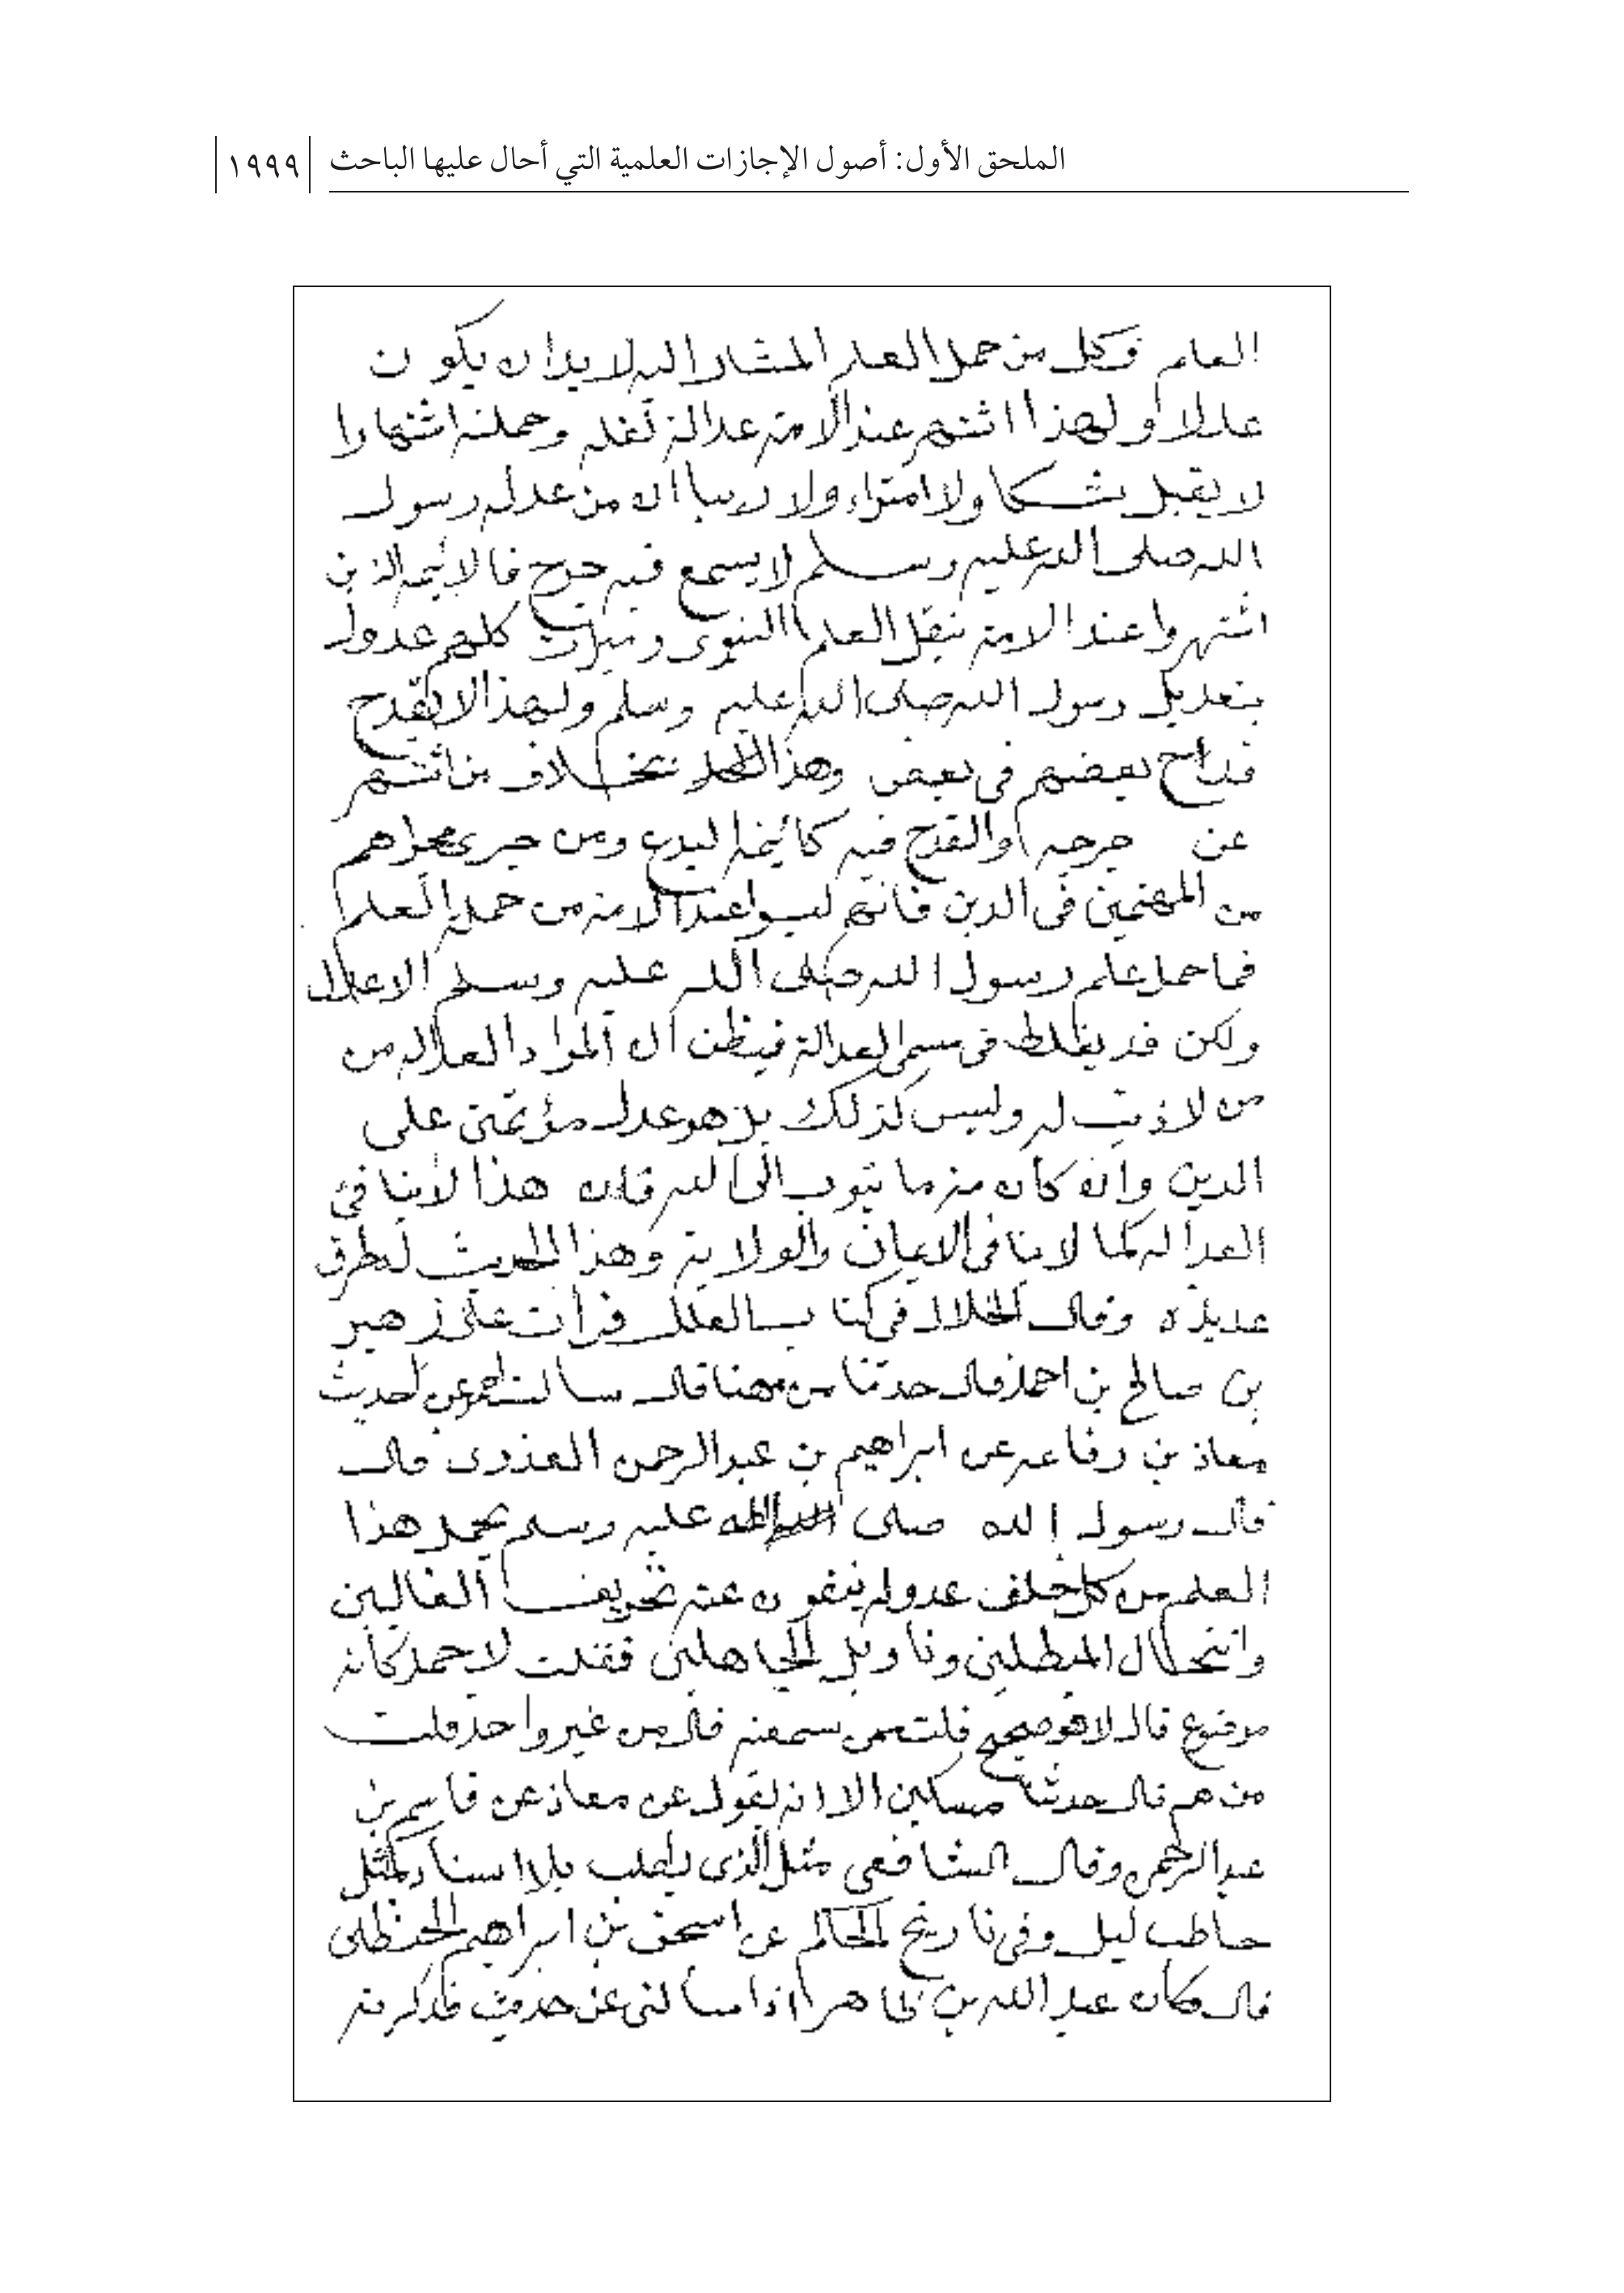 الملحق الأول: أصول الإجازات العلمية التي أحال عليها الباحث ١٩٩٩
العلم فكل من حمل العلم المشار اليه لا بد ان يكون
عدلا ولهذا اشتهر عند الامة عدالة نقله وحملته اشتهارا
لا يقبل شكا ولا امتراء ولا ريبا ان من عدله رسول
الله صلى الله عليه وسلم لا يسمع فيه جرح فالائمه الذين
اشتهروا عند الامة بنقل العلم النبوي وميراثه كلهم عدول
بتعديل رسول الله صلى الله عليه وسلم ولهذا لا يقدح
قداح بعضهم في بعض وهذا بخلاف من اشتهر
عن جرحه والقدح فيه كائمة البدع ومن جرى مجراهم
من المتهمين في الدين فانهم ليسوا عند الامة من حملة العلم
فما حمل علم رسول الله صلى الله عليه وسلم الا عدل
ولكن قد يغلط في مسمى العدالة فيظن ان المراد بالعدالة من
من لا ذنب له وليس كذلك بل هو عدل مؤتمن على
الدين وان كان منه ما يتوب الى الله فان هذا لا ينافي
العدالة كما لا ينافي الايمان والولاية وهذا الحديث له طرق
عديده وقال الخلال في كتاب العلل قرات على زهير
بن صالح بن احمد قال حدثنا مهنا قال سالت احمد عن حديث
معاذ بن رفاعه عن ابراهيم بن عبد الرحمن العذري قال
قال رسول الله صلى الله عليه وسلم يحمل هذا
العلم من كل خلف عدوله ينفون عنه تحريف الغالين
وانتحال المبطلين وتاويل الجاهلين فقلت لاحمد كانه
موضوع قال لا هو صحيح فقلت ممن سمعته قال من غير واحد قلت
من هم قال حدثنا مسكين الا انه يقول عن معاذ عن قاسم بن
عبد الرحمن وقال الشافعي مثل الذي يطلب بلا اسناد كمثل
حاطب ليل وفي تاريخ الحاكم عن اسحق بن ابراهيم الحنظلي
قال كان عبد الله بن طاهر اذا سالني عن حديث فذكرته